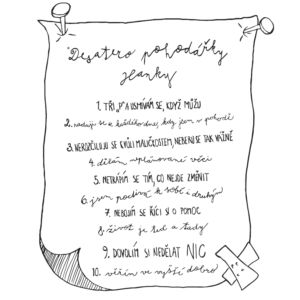 Desatero pohodářky
Hanky
1. TŘI "P" A USMÍVÁM SE, KDYŽ MŮŽU
2. raduji se z každého dne, kdy jsem v pohodě
3. NEROZČILUJU SE KVŮLI MALIČKOSTEM, NEBERU SE TAK VÁŽNĚ
4. dělám neplánované věci
5. NETRÁPÍM SE TÍM, CO NEJDE ZMĚNIT
6. jsem poctivá k sobě i druhým
7. NEBOJÍM SE ŘÍCI SI O POMOC
8. život je teď a tady
9. DOVOLÍM SI NEDĚLAT NIC
10. věřím ve vyšší dobro